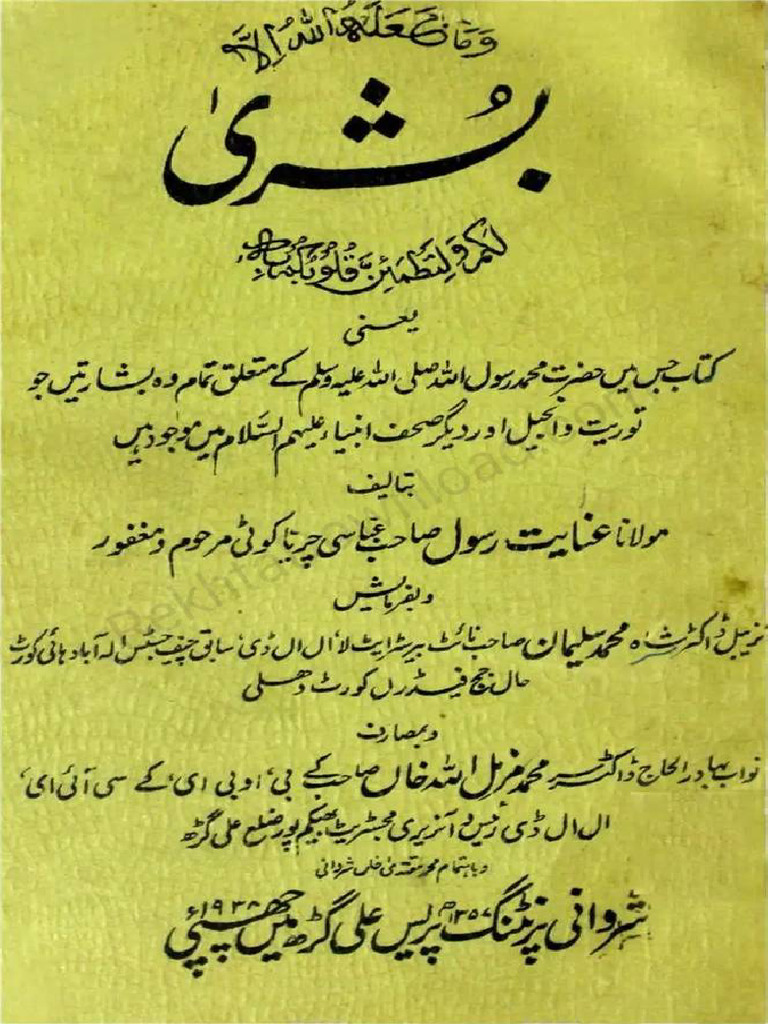 وَمَا جَعَلَهُ اللهُ اِلَّا
بُشریٰ
لَکُمْ وَلِتَطْمَئِنَّ قُلُوْبُکُمْ بِهٖ
یعنی
کتاب جس میں حضرت محمد رسول اللہ صلی اللہ علیہ وسلم کے متعلق تمام وہ بشارتیں جو
توریت و انجیل اور دیگر صحف انبیاء علیہم السّلام میں موجود ہیں
بتالیف
مولانا عنایت رسول صاحب عباسی چریاکوٹی مرحوم و مغفور
وبفرمایش
نربیل ڈاکٹر سر شاہ محمد سلیمان صاحب نائٹ بیرسٹرایٹ لا، ال ال ڈی، سابق چیف جسٹس الہ آباد ہائی کورٹ
حال جج فیڈرل کورٹ دھلی
وبمصارف
نواب بہادر الحاج ڈاکٹر سر محمد مزمل اللہ خاں صاحب کے بی، او بی ای، کے سی آئی ای،
ال ال ڈی رئیس و آنریری مجسٹریٹ بھیکم پور ضلع علی گڑھ
و باہتمام محمد مقتدیٰ خاں شروانی
شروانی پرنٹنگ پریس علی گڑھ میں چھپی ۱۳۵۷ھ ۱۹۳۸ء
Rekhtadownload.com